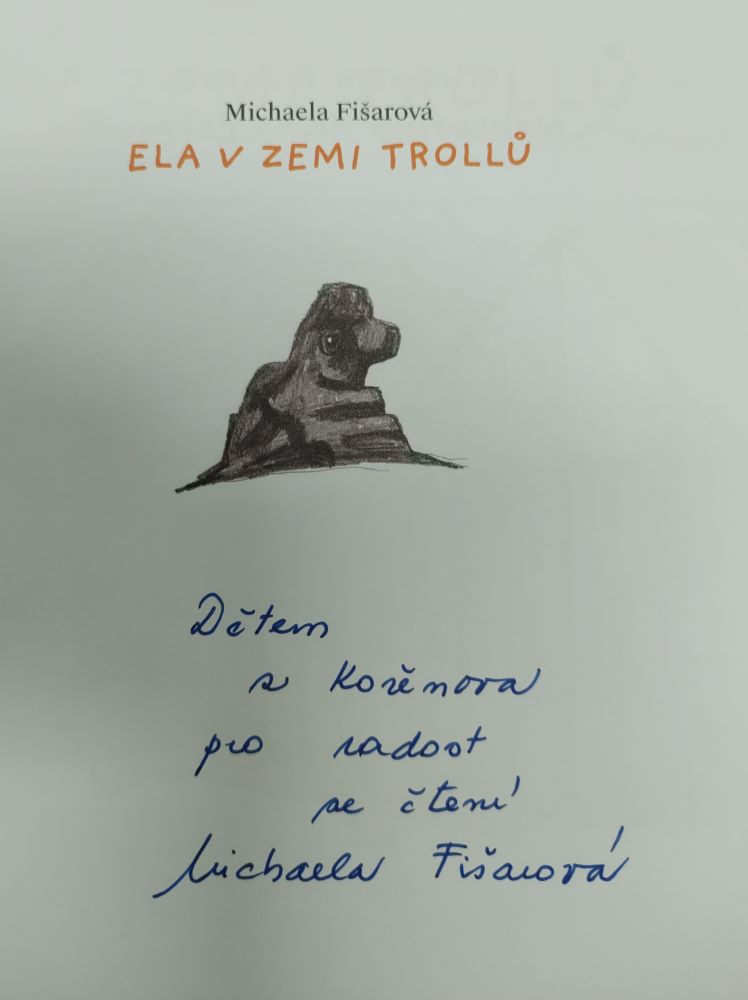 Michaela Fišarová
ELA V ZEMI TROLLŮ
Dětem
z Kořenova
pro radost
ze čtení
Michaela Fišarová